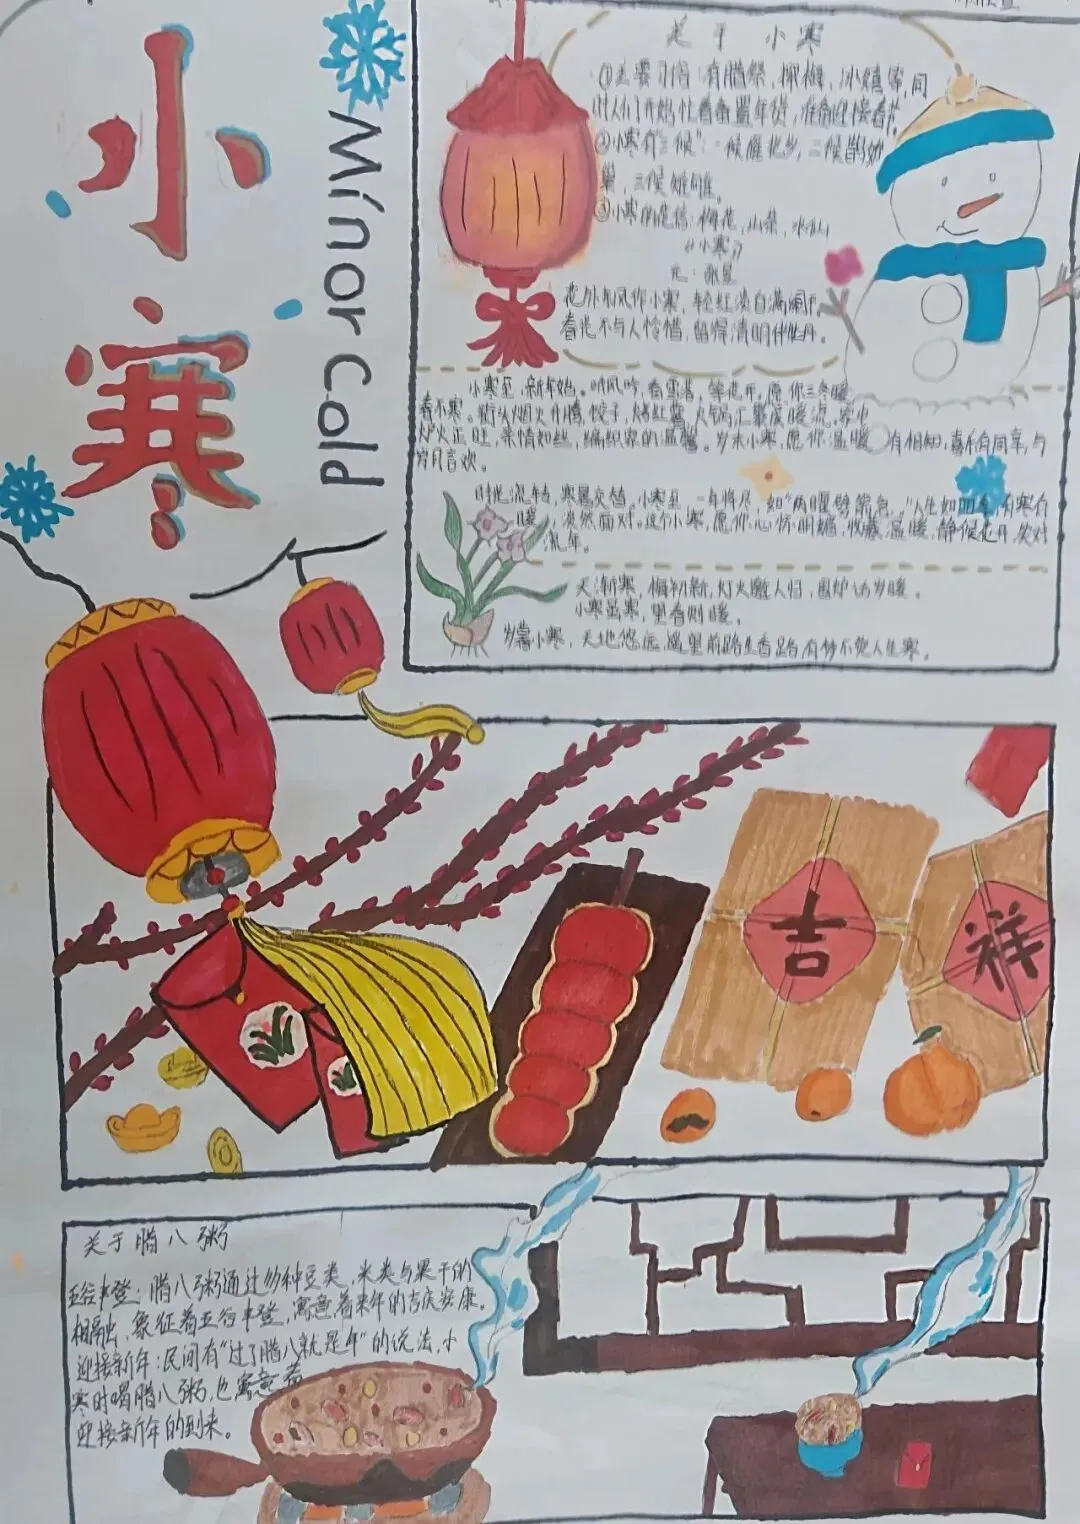 小寒
Minor cold
关于 小寒
①主要习俗:有腊祭,冰嬉等,同
时人们开始忙着备置年货,准备迎接春节
②小寒有"三候":一候雁北乡,二候鹊始
巢,三候雉雊。
③小寒的花信:梅花,山茶,水仙
《小寒》
元:张昱
花外东风作小寒,轻红淡白满阑干。
春光不与人怜惜,留得清明伴牡丹。
小寒至,新年始。听风吟,看雪落,等花开,愿你三冬暖,
春不寒。街头烟火升腾,饺子,烤红薯,火锅汇聚成暖流,家中
炉火正旺,亲情如丝,编织家的温馨。岁末小寒,愿你温暖有相知,喜乐有同享,与
岁月言欢。
时光流转,寒暑交替,小寒至,一年将尽,如"两暖劈箭急。"人生如四季,有寒有
暖,淡然面对。这个小寒,愿你心怀明媚,收藏温暖,静候花开,笑对
流年。
天渐寒,梅初新,灯火邀人归,围炉话岁暖。
小寒虽寒,里春则暖。
岁暮小寒,天地悠远,遥望前路生香路有梦不觉人生寒。
吉
祥
关于腊八粥
五谷丰登:腊八粥通过多种豆类,米类与果干的
相融,象征着五谷丰登,寓意着来年的吉庆安康。
迎接新年:民间有"过了腊八就是年"的说法,小
寒时喝腊八粥,也寓意着
迎接新年的到来。